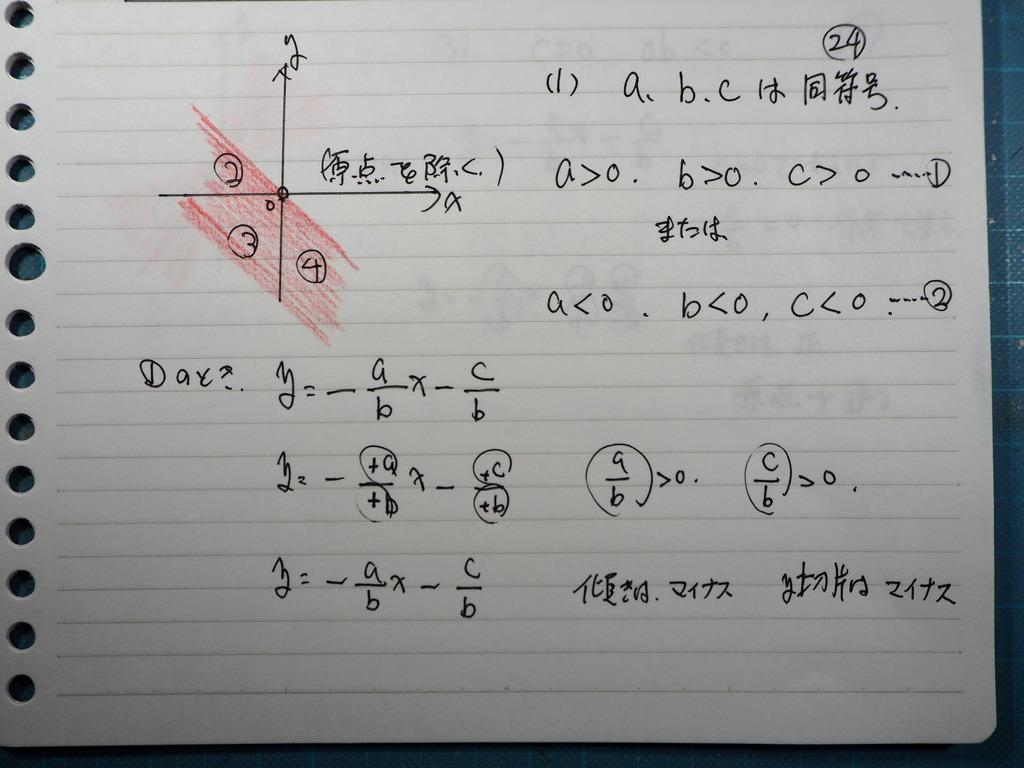 ㉔
(1) a、b、cは同符号.
y
②
(原点を除く.)
a>0. b>0. c>0 ……①
0
x
または
③
④
a<0. b<0, c<0 ……②
①のとき. y=-a/b x-c/b
y=-+a/+b x-+c/+b a/b>0. c/b>0.
y=-a/b x-c/b 傾きは、マイナス y切片はマイナス